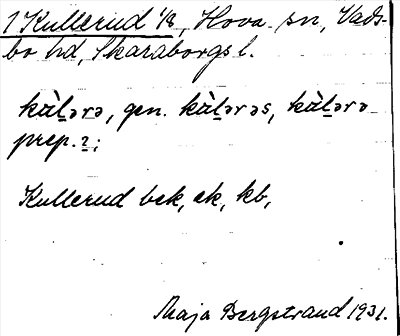 1 Kullerud 1/8, Hova sn, Vads-
bo hd, Skaraborgs l.
kùl̠ərə, gen. kùl̠ərəs, kùl̠ərə
prep. 2;
Kullerud bek, ek, kb,
Maja Bergstrand 1931.